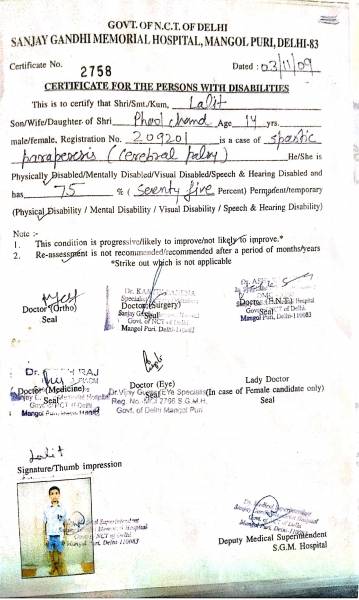 GOVT. OF N.C.T. OF DELHI
SANJAY GANDHI MEMORIAL HOSPITAL, MANGOL PURI, DELHI-83
Certificate No. 2758 Dated : 03/11/09
CERTIFICATE FOR THE PERSONS WITH DISABILITIES
This is to certify that Shri/Smt./Kum, Lalit
Son/Wife/Daughter of Shri Phool chand Age 14 yrs.
male/female, Registration No. 209201 is a case of spastic
paraparesis (Cerebral palsy) He/She is
Physically Disabled/Mentally Disabled/Visual Disabled/Speech & Hearing Disabled and
has 75 % (Seventy five Percent) Permanent/temporary
(Physical Disability / Mental Disability / Visual Disability / Speech & Hearing Disability)
Note :-
1. This condition is progressive/likely to improve/not likely to improve.*
2. Re-assessment is not recommended/recommended after a period of months/years
*Strike out which is not applicable
Doctor (Ortho) Doctor (Surgery) Doctor (E.N.T.)
Seal Seal Seal
Govt. of NCT of Delhi
Mangol Puri, Delhi-110083
Doctor (Medicine) Doctor (Eye) Lady Doctor
Seal Seal (In case of Female candidate only)
Seal
Dr. Vijay Eye Specialist
Reg. No. 2796 S.G.M.H.
Govt. of Delhi Mangol Puri
Lalit
Signature/Thumb impression
Deputy Medical Superintendent
S.G.M. Hospital